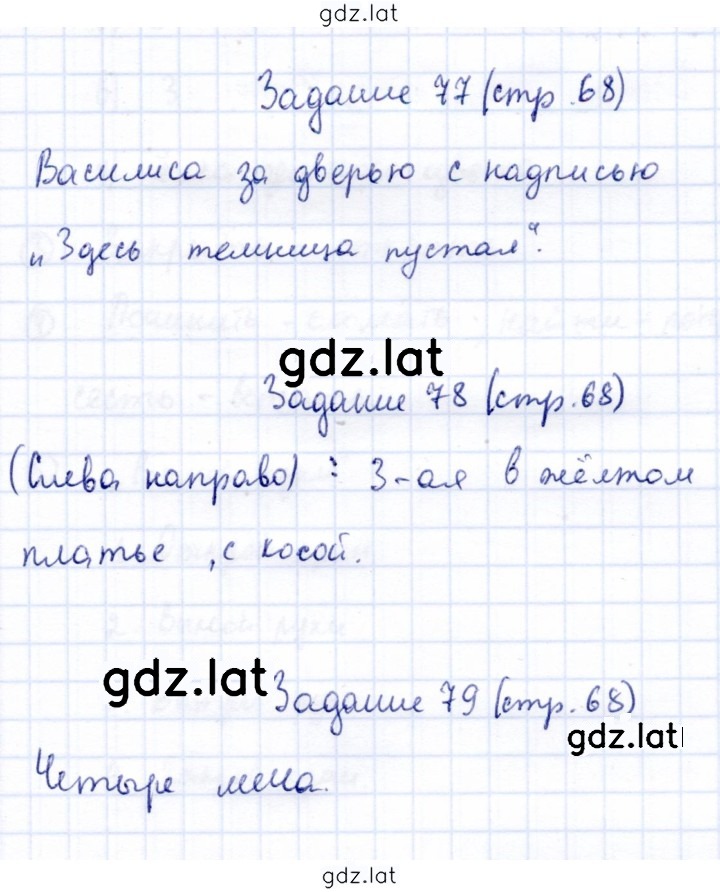 gdz.lat
Задание 77 (стр. 68)
Василиса за дверью с надписью
„Здесь темница пустая“.
gdz.lat
Задание 78 (стр. 68)
(Слева направо) : 3-ая в жёлтом
платье , с косой.
gdz.lat
Задание 79 (стр. 68)
gdz.lat
Четыре меча.
gdz.lat